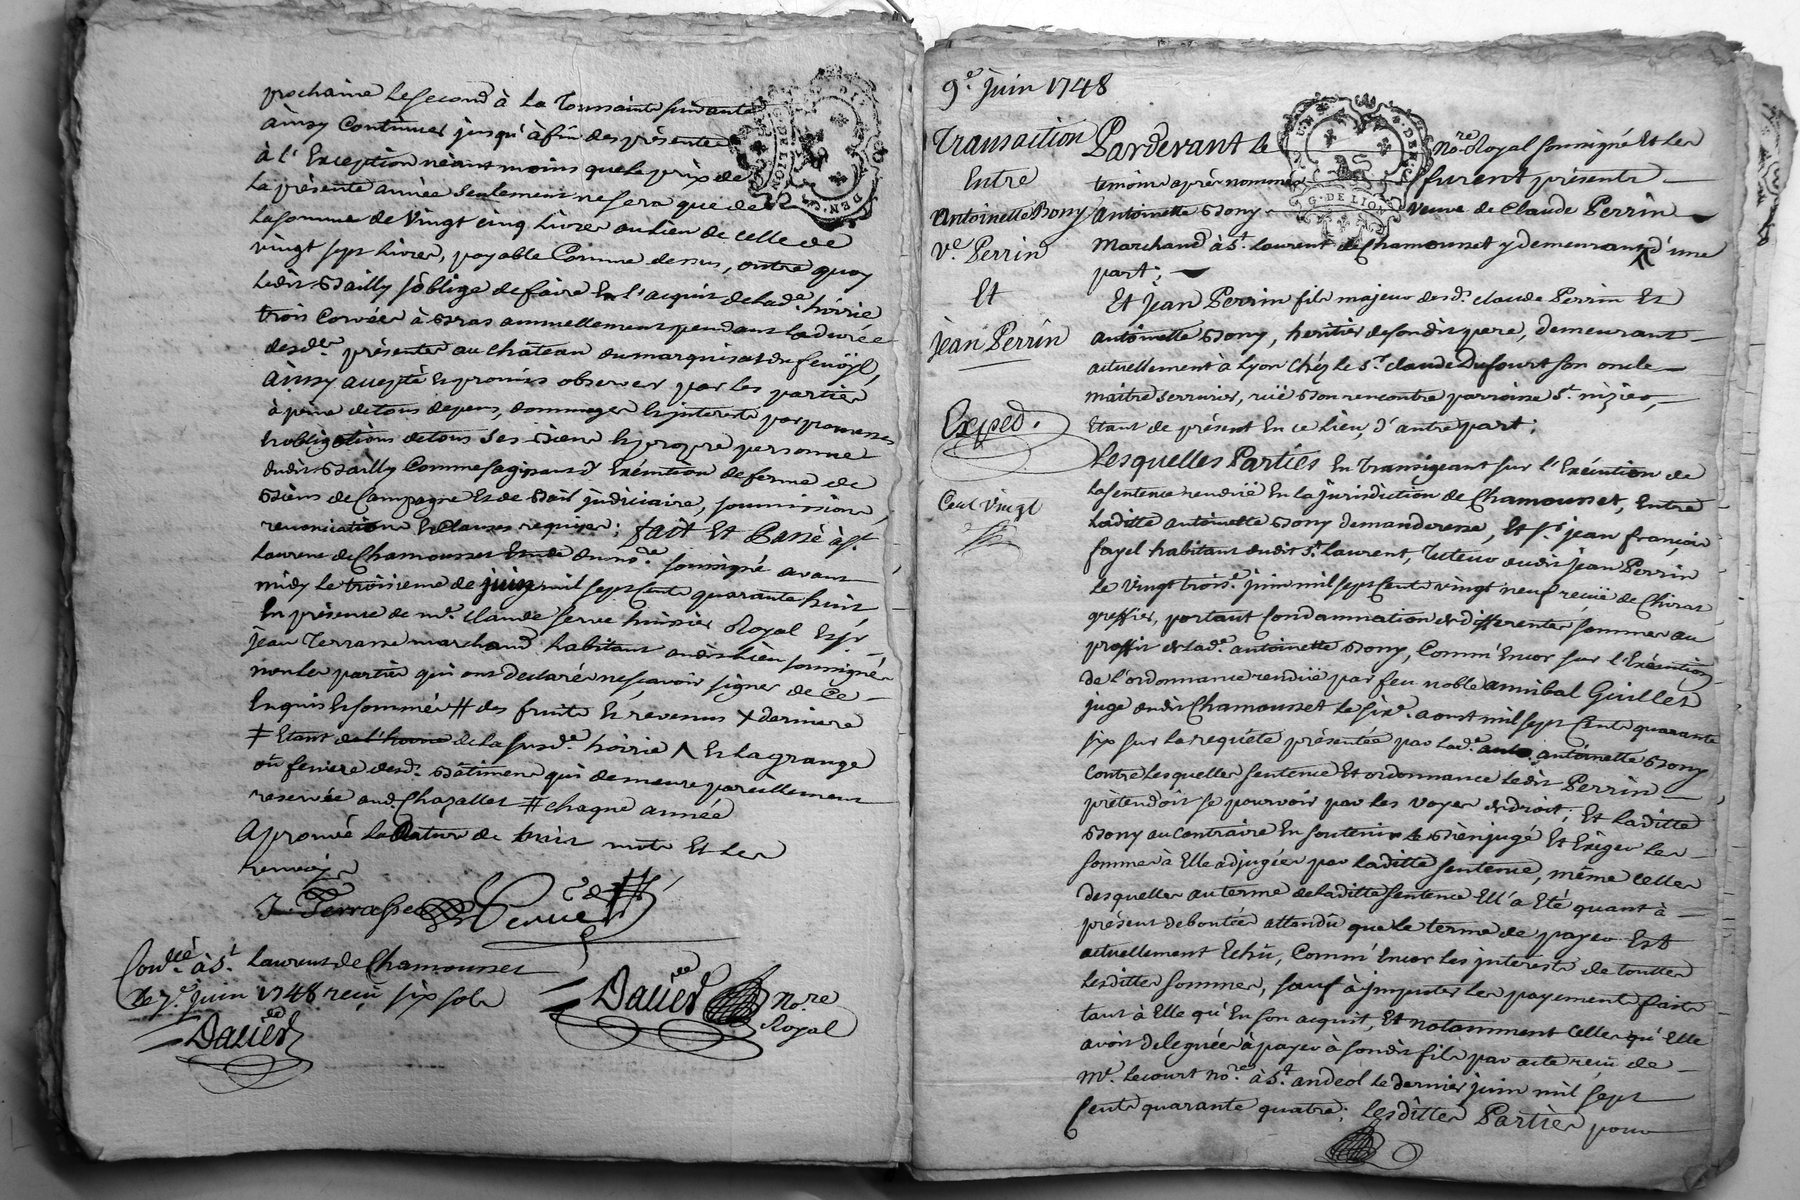 prochaine le second à la Toussaints suivante
ainsy continuer jusqu'à fin des présentes
à l'Exception néantmoins que le prix de
la présente année seulement ne sera que de
la somme de vingt cinq livres au lieu de celle de
vingt sept livres, payable comme dessus, outre quoy
ledit Bailly s'oblige de faire En l'acquit de lad.e hoirie
trois corvées à Bras annuellement pendant la durée
desd.es présentes au château du marquisat du fenoÿl,
ainsy accepté Et promis observer par les parties
à peine de tous depens, dommages Et interets par promesses
Et obligations de tous ses Biens Et propre personne
dudit Bailly comme s'agissant d'Exécution de ferme de
Biens de Campagne Et de Bail judiciaire, soumissions,
renonciations Et clauses requises; fait Et Passé à S.t
Laurent de Chamousset Etude du no.re soussigné avant
midy le troisieme de juin mil sept Cents quarante huit
En présence de m.e claude serve huissier Royal Et s.r
jean Terrasse marchand habitants audit lieu soussignés
non les parties qui ont declaré ne scavoir signer de ce
Enquis Et sommés # des fruits Et revenus x derniere
≠ Etant de l'hoirie de la susd.e hoirie ^ Et la grange
ou feniere desd. Bâtiments qui demeure pareillement
reservée aud Chazallet # chaque année
Aprouvé la rature de huit mots Et les
renvois
J. Terrasse Serve
Con.lée à S.t Laurent de Chamousset
le 7.e juin 1748 reçu six sols
Dalier
Dalier No.re
Royal
9.e juin 1748
Transaction
Entre
Antoinette Bony
V.e Perrin
Et
jean Perrin
Exped.
Cent vingt
G. DE LION
Pardevant le No.re Royal soussigné Et les
temoins après nommés furent présents
Antoinette Bony veuve de Claude Perrin
Marchand à S.t Laurent de Chamousset y demeurant d'une
part;
Et Jean Perrin fils majeur desd. claude Perrin Et
antoinette Bony, heritier de sondit pere, demeurant
actuellement à Lyon chéz le S.r claude Dufourt son oncle
maitre serrurier, ruë Bonrencontre parroisse S.t nizier,
Etant de présent En ce lieu, d'autre part;
Lesquelles Parties En transigeant sur l'Exécution de
la sentence renduë En la jurisdiction de Chamousset, Entre
laditte antoinette Bony demanderesse, Et s.r jean françois
fayel habitant dudit S.t Laurent, Tuteur dudit jean Perrin
le vingt trois.e juin mil sept Cents vingt neuf reçuë de Chirat
greffier, portant Condamnation de differentes sommes au
proffit de lad.e antoinette Bony, Comm'Encor sur l'Exécution
de l'ordonnance renduë par feu noble annibal Guillet
juge dudit Chamousset le six.e aoust mil sept Cents quarante
six sur la requête présentée par lad.e antoinette Bony
Contre lesquelles sentence Et ordonnance ledit Perrin
prétendoit se pourvoir par les voyes de droit; Et laditte
Bony au contraire En soutenir le Bien jugé Et Exiger les
sommes à Elle adjugées par laditte sentence, même celles
desquelles au terme de laditte sentence Ell'a Eté quant à
présent deboutée attendu que le terme de payer Est
actuellement Echü, Comm'Encor les interets de touttes
lesdittes sommes, sauf à imputer les payements faits
tant à Elle qu'En son acquit, Et notamment Celle qu'Elle
avoit deleguée à payer à sondit fils par acte reçu de
M.e Lecourt no.re à S.t andeol le dernier juin mil sept
Cents quarante quatre; Lesdittes Parties pour